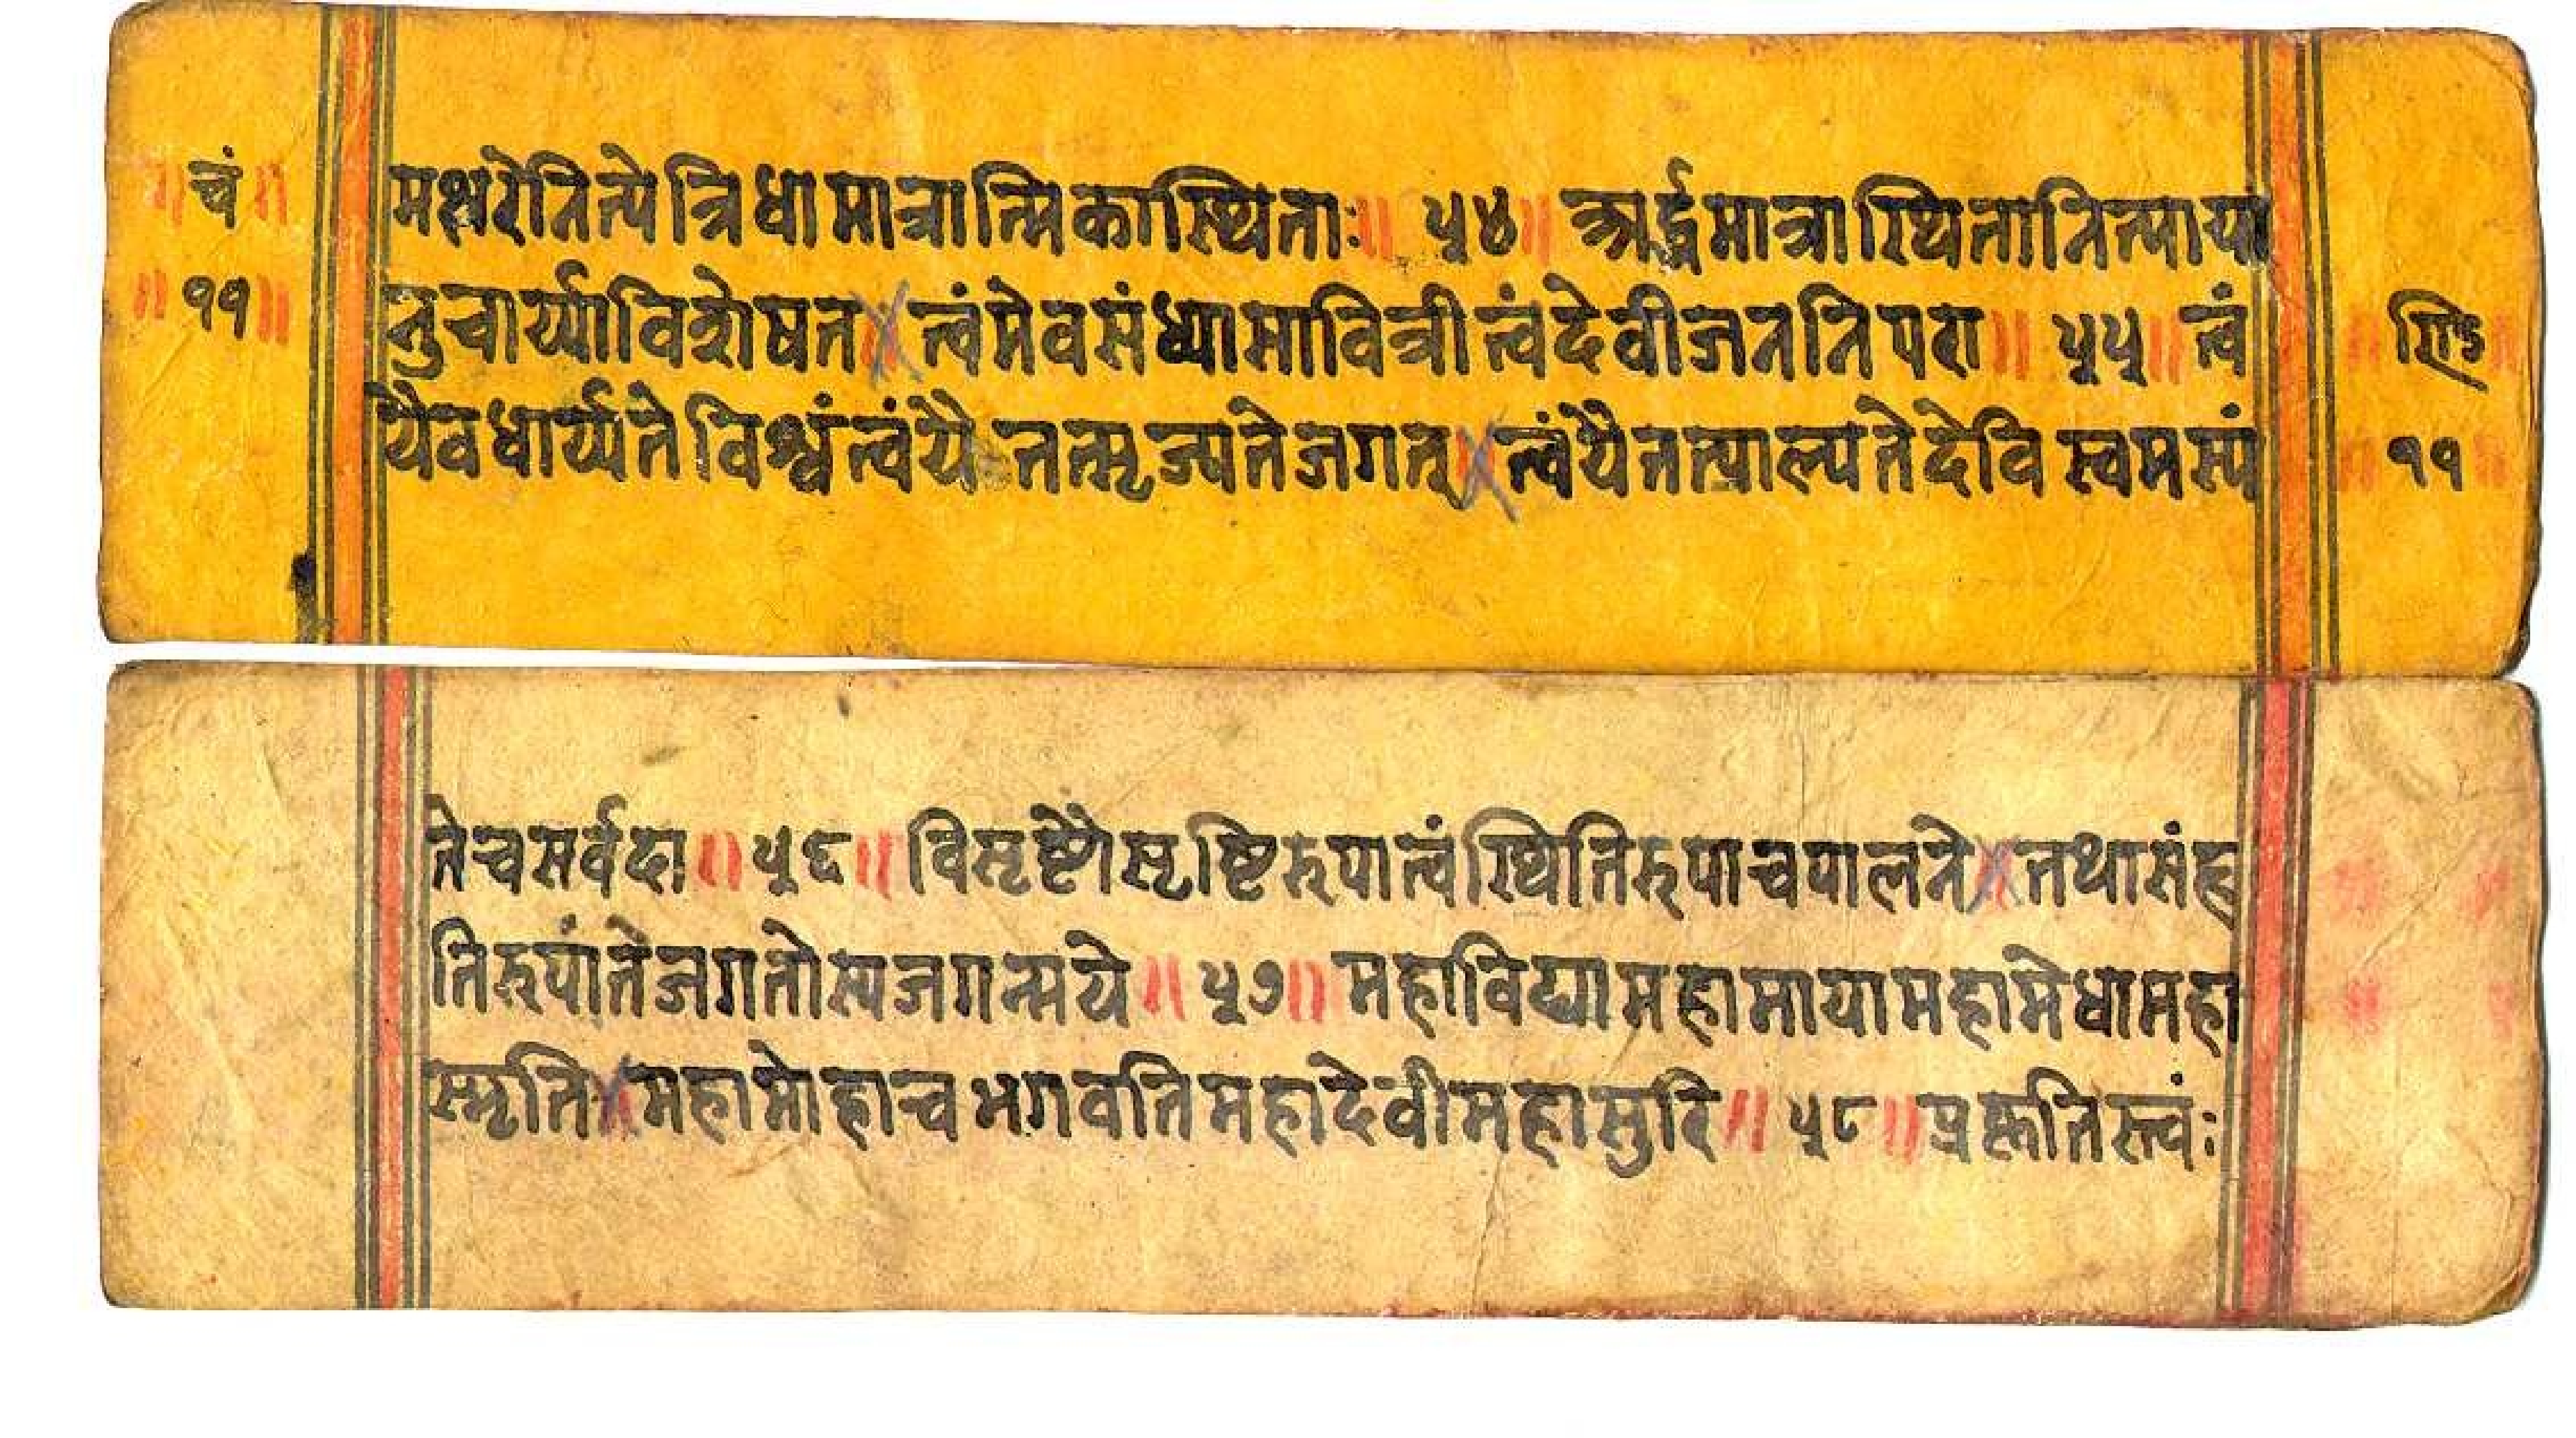 ॥ चं ॥
॥ ११ ॥
मक्षरेनित्येत्रिधामात्रात्मिकास्थिताः॥ ५४॥ अर्द्धमात्रास्थितानित्मायां
नुचार्य्याविशेषत॥ त्वंमेवसंध्यासावित्रीत्वंदेवीजननिपरा॥ ५५॥ त्वं
यैवधार्य्यतेविश्वंत्वंयै तत्सृज्यतेजगत्॥ त्वंयैतत्पाल्यतेदेवि त्वमस्यं
॥ ११ ॥
तेचसर्वदा॥ ५६॥ विसृष्टौसृष्टिरुपात्वंस्थितिरुपाचपालने॥ तथासंहृ
तिरुपांतेजगतोस्यजगन्मये॥ ५७॥ महाविद्यामहामायामहामेधामहा
स्मृति॥ महामोहाचभगवतिमहादेवीमहासुरि॥ ५८॥ प्रकृतिस्त्वंः